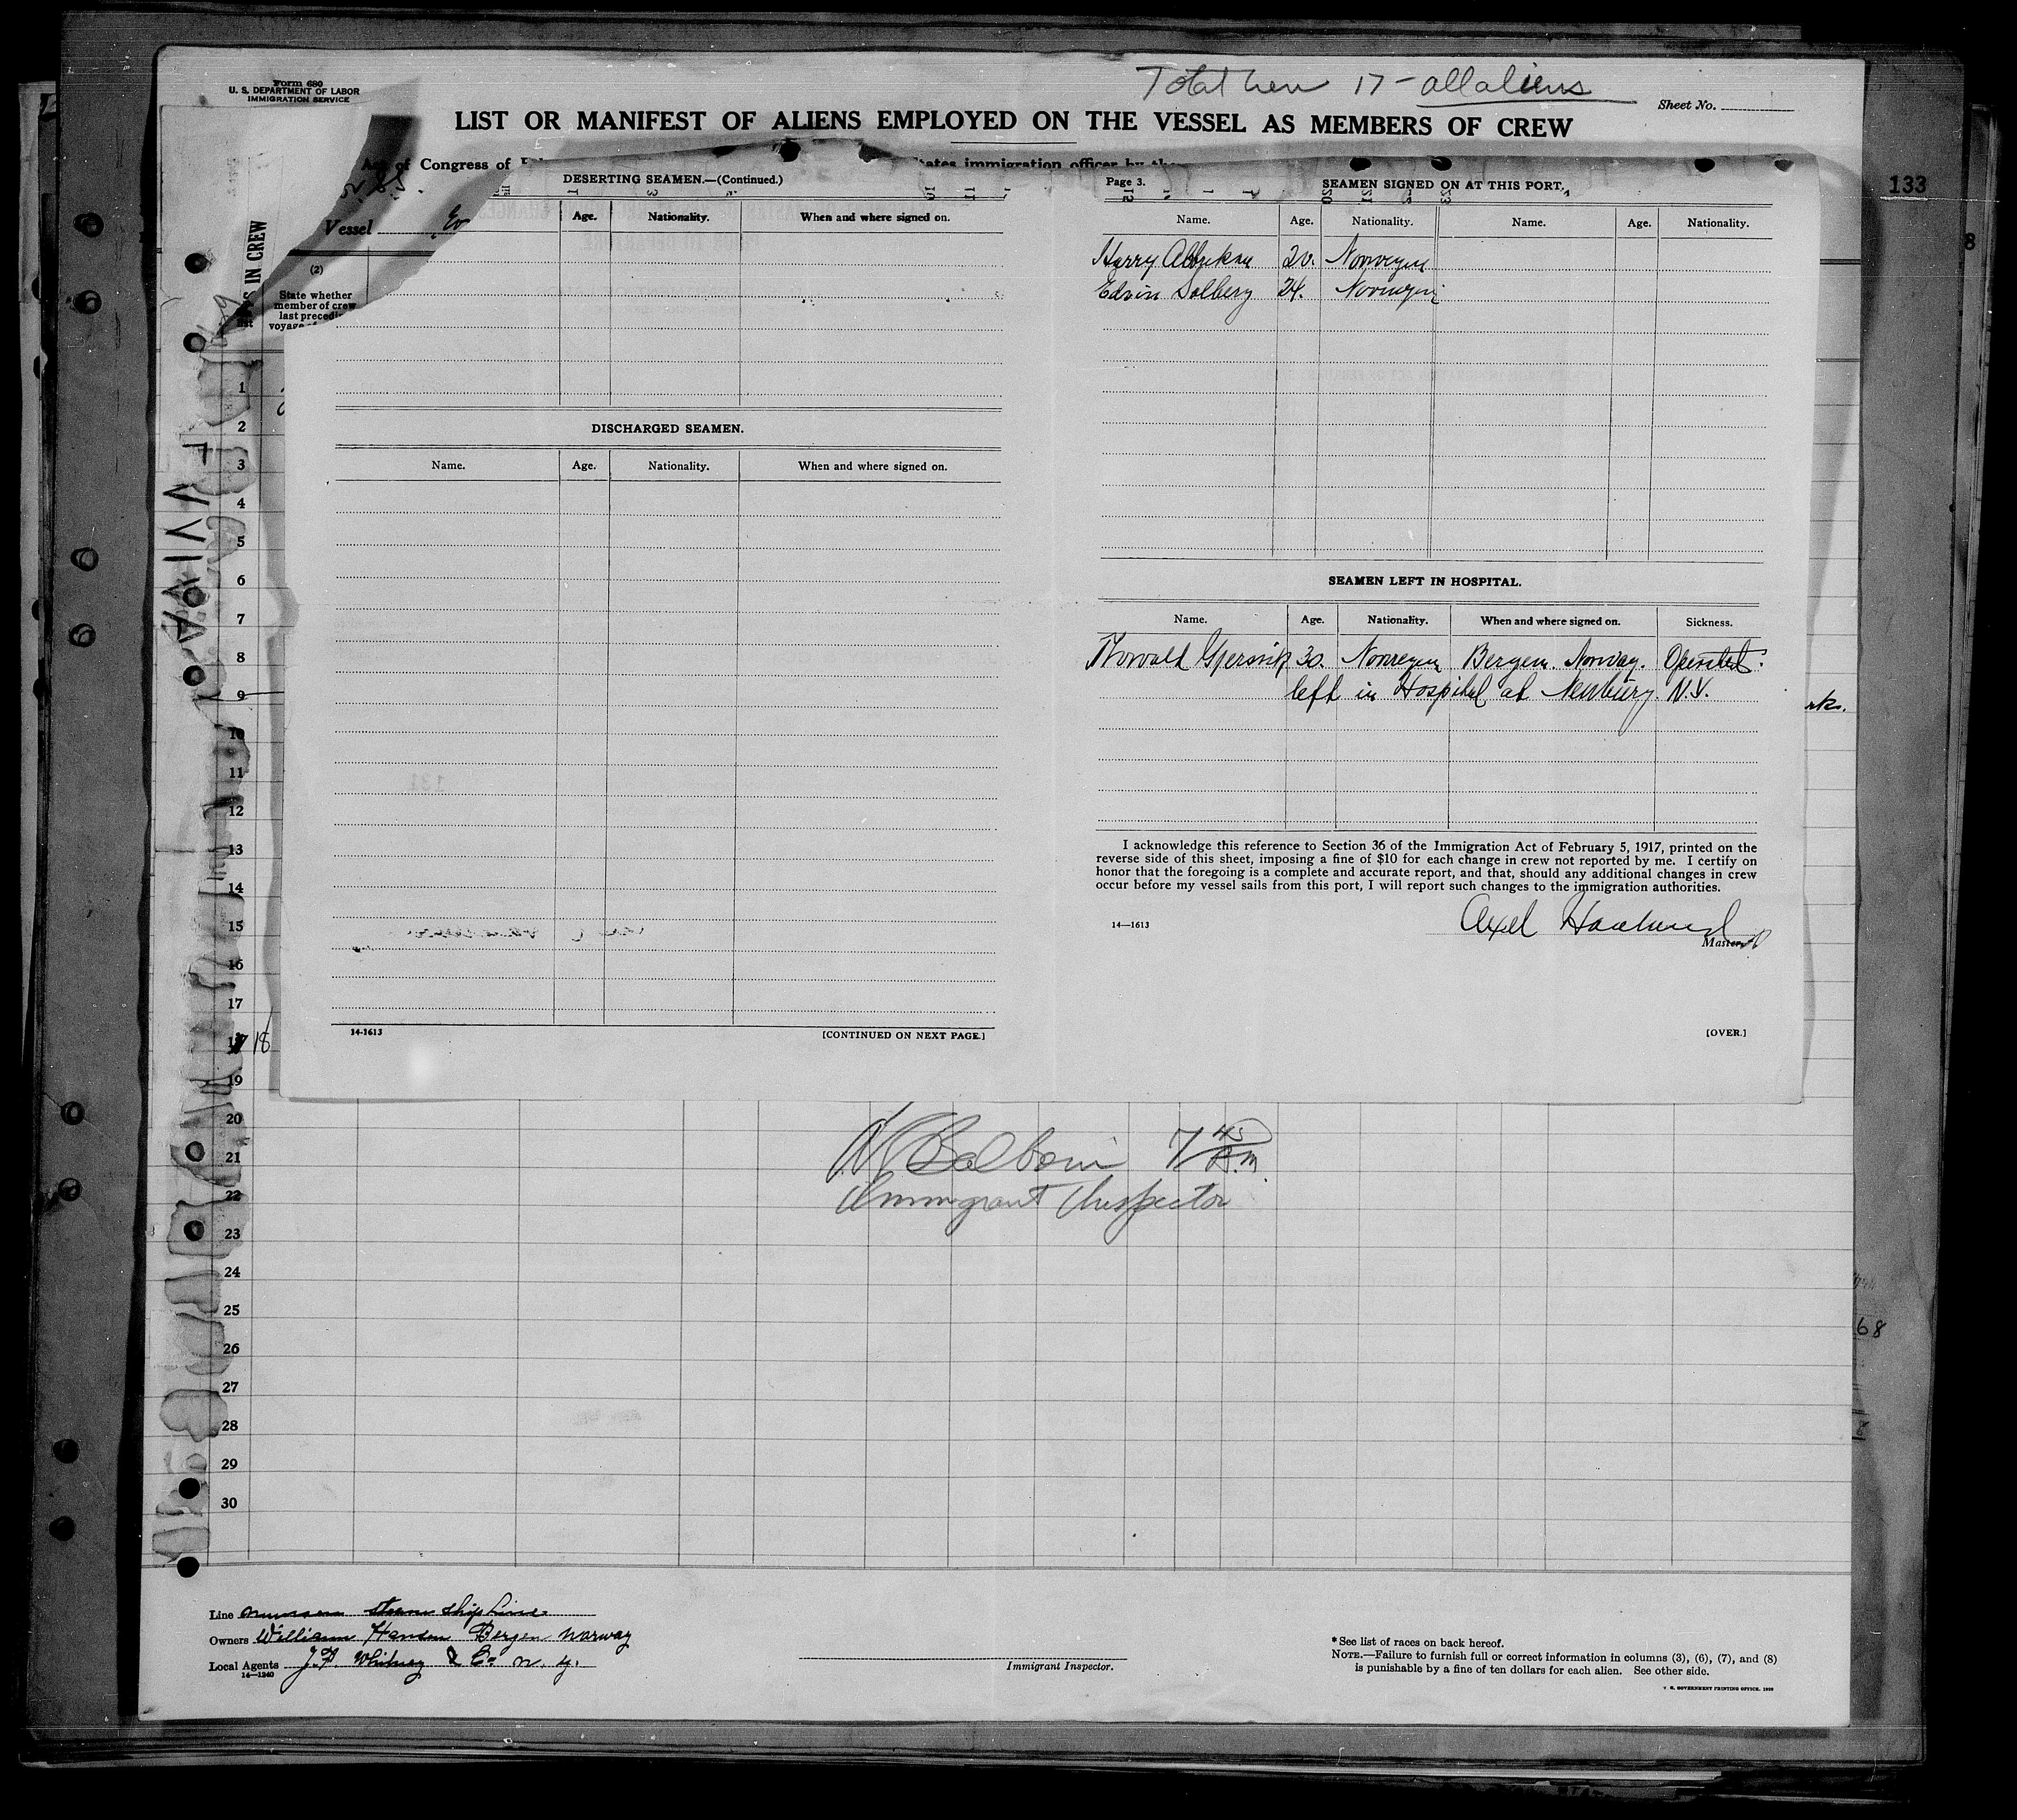 Form 680
U. S. DEPARTMENT OF LABOR
IMMIGRATION SERVICE
Total Crew 17 - all aliens
Sheet No.
LIST OR MANIFEST OF ALIENS EMPLOYED ON THE VESSEL AS MEMBERS OF CREW
Act of Congress of
states immigration officer by the
133
Vessel
(2)
State whether
member of crew
last preceding
IN CREW
DESERTING SEAMEN.—(Continued.)
Age. Nationality. When and where signed on.
DISCHARGED SEAMEN.
Name. Age. Nationality. When and where signed on.
14-1613 [CONTINUED ON NEXT PAGE.]
Page 3. SEAMEN SIGNED ON AT THIS PORT.
Name. Age. Nationality. Name. Age. Nationality.
Harry 20. Norwegian
Edvin Solberg 24. Norwegian
SEAMEN LEFT IN HOSPITAL.
Name. Age. Nationality. When and where signed on. Sickness.
Thorvald Gjersvik 30. Norwegian Bergen. Norway. Operated.
left in Hospital at Newburg. N.Y.
I acknowledge this reference to Section 36 of the Immigration Act of February 5, 1917, printed on the
reverse side of this sheet, imposing a fine of $10 for each change in crew not reported by me. I certify on
honor that the foregoing is a complete and accurate report, and that, should any additional changes in crew
occur before my vessel sails from this port, I will report such changes to the immigration authorities.
14—1613
Axel
Master.
[OVER.]
1
2
3
4
5
6
7
8
9
10
11
12
13
14
15
16
17
18
19
20
21
22
23
24
25
26
27
28
29
30
7 45 A.m.
Immigrant Inspector
68
Line Munson Steam Ship Line
Owners William Hansen Bergen Norway
Local Agents J.F. Whitney & Co. N. Y.
14—1240
Immigrant Inspector.
*See list of races on back hereof.
NOTE.—Failure to furnish full or correct information in columns (3), (6), (7), and (8)
is punishable by a fine of ten dollars for each alien. See other side.